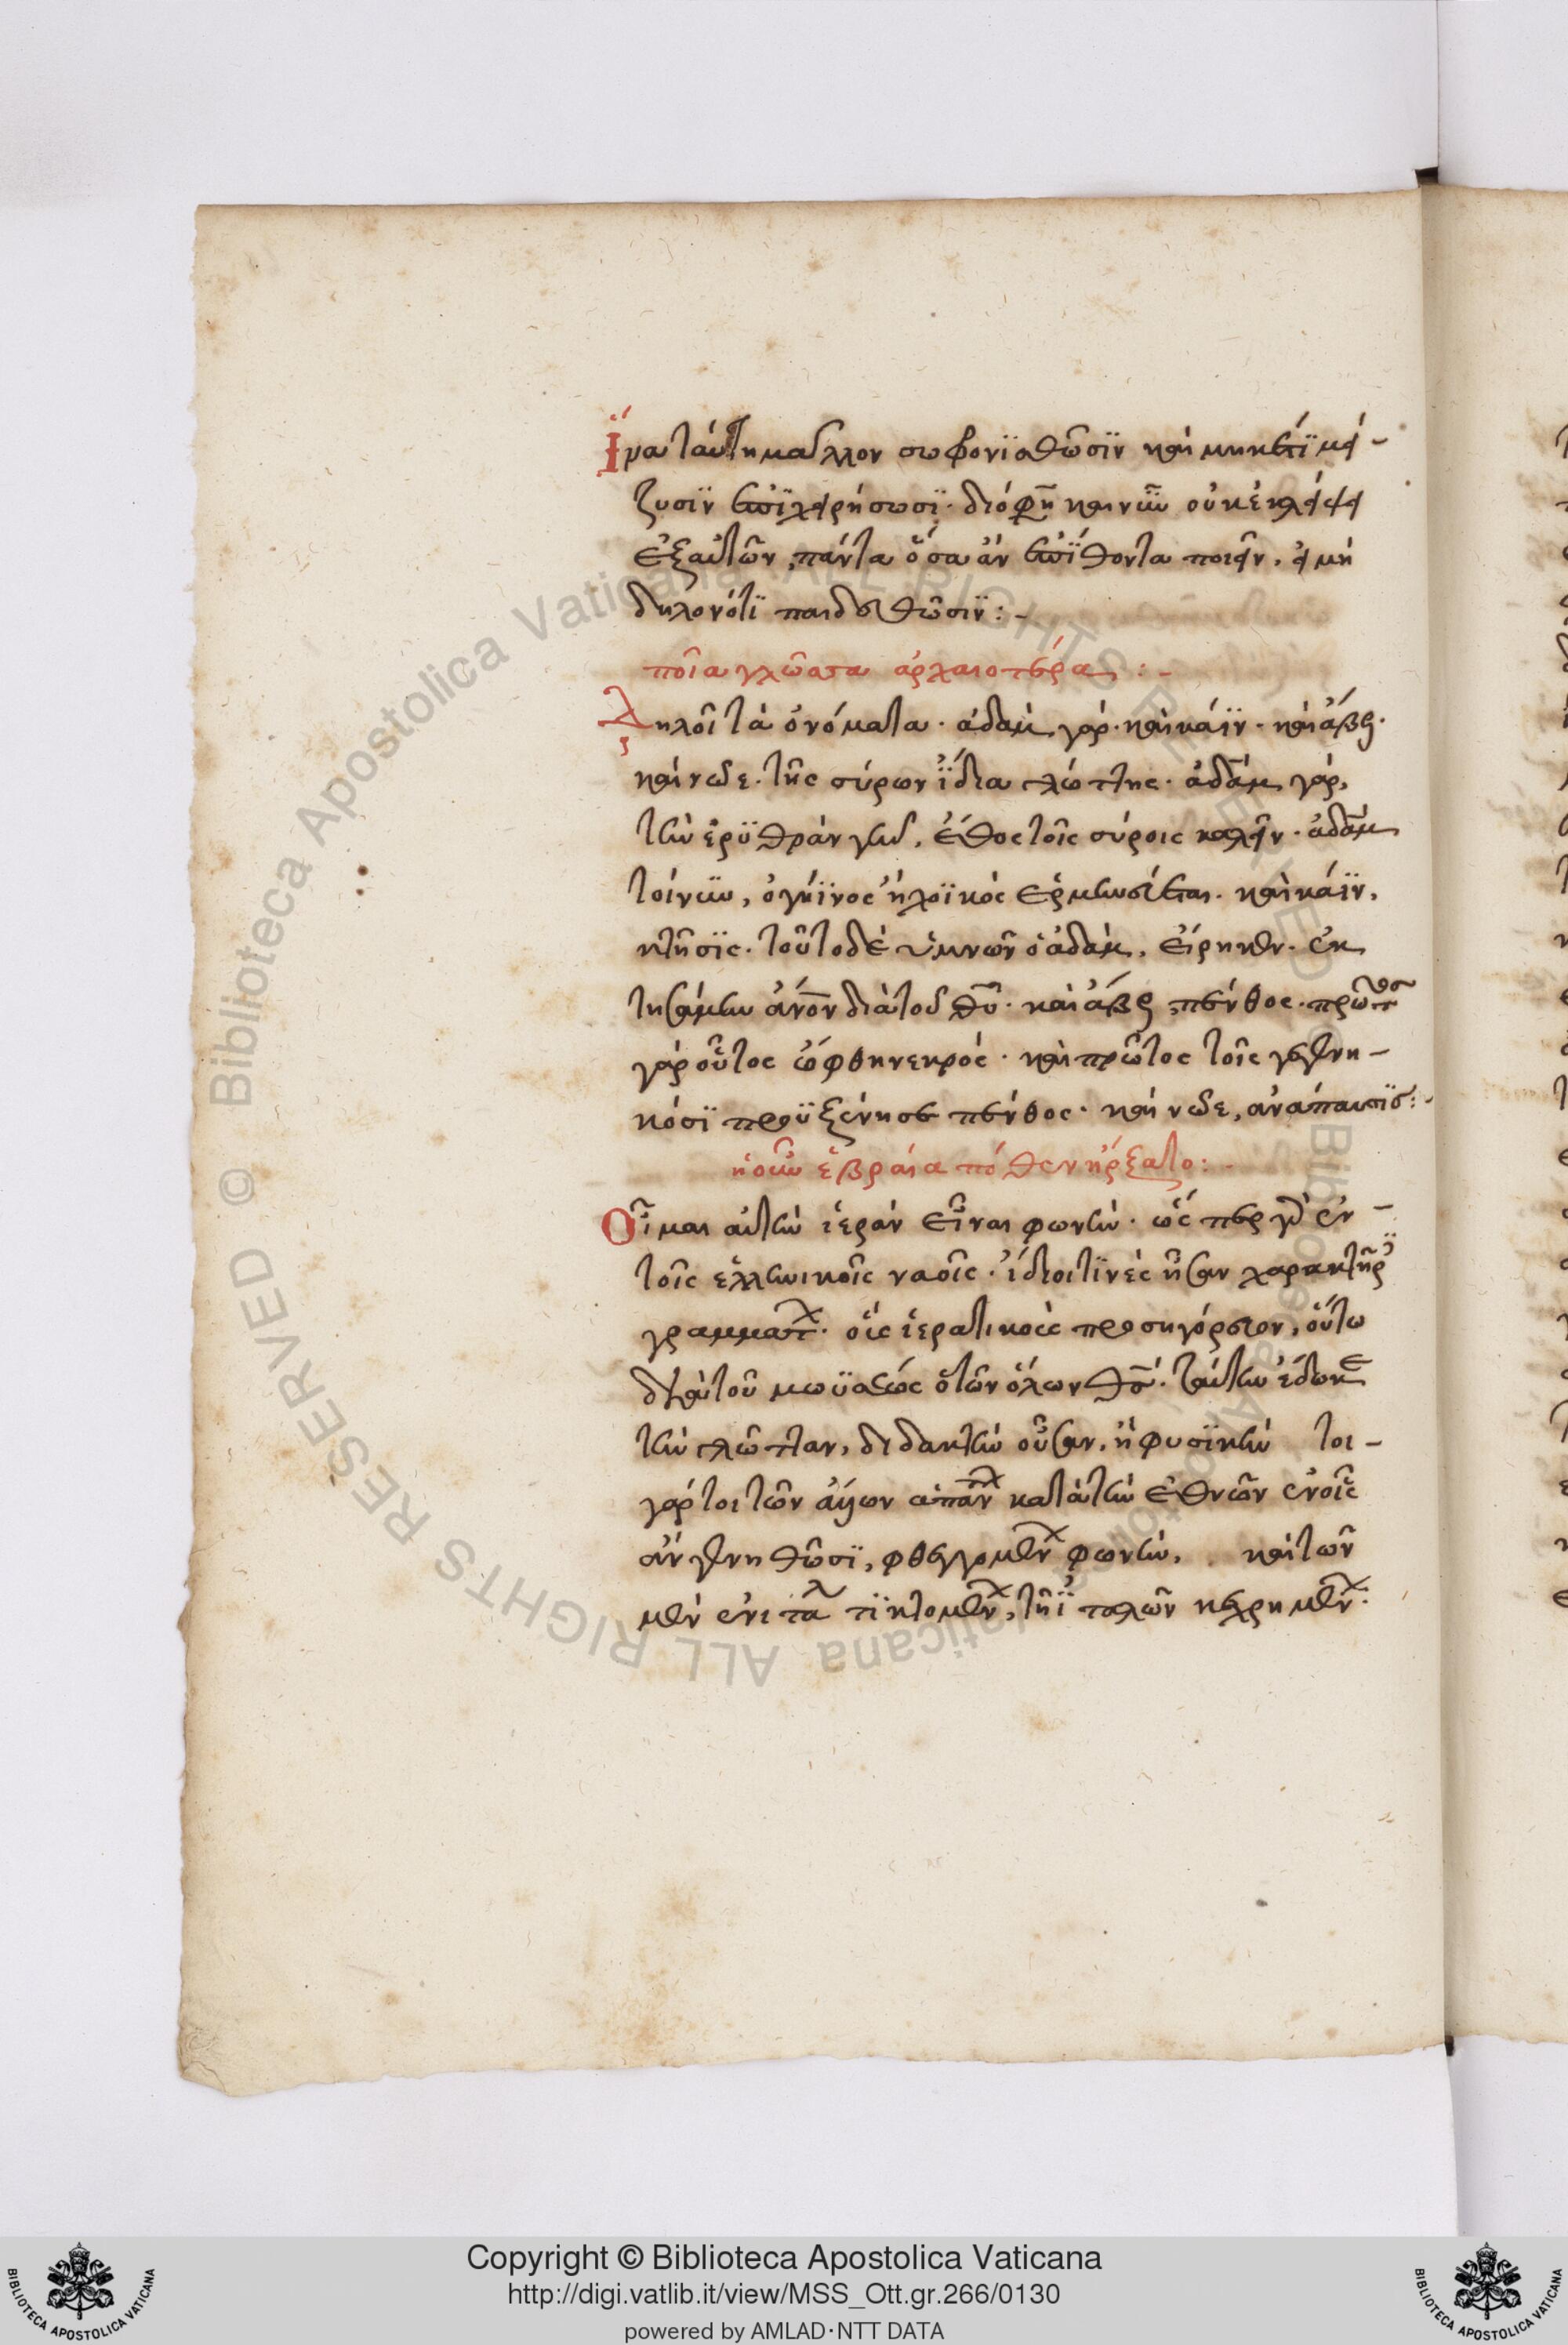 ἵνα ταύτη μᾶλλον σωφρονϊσθῶσϊν καὶ μηκέτϊ μεί-
ζοσϊν ἐπϊχειρήσωσϊ. διό φη καὶ νῦν οὐκ ἐκλείψει
ἐξαὐτῶν, πάντα ὅσα ἂν ἐπίθονται ποιεῖν, εἰ μὴ
δηλονότϊ παιδευθῶσϊν:-
ποῖα γλῶσσα ἀρχαιοτέρα:-
Δηλοῖ τὰ ὀνόματα. ἀδὰμ γάρ. καὶ κάϊν. καὶ ἄβελ.
καὶ νῶε. τῆς σύρων ἴδια γλώττης. ἀδὰμ γάρ,
τὴν ἐρυθρὰν γῆν, ἔθος τοῖς σύροις καλεῖν. ἀδὰμ
τοίνυν, ὁ γήϊνος ἢ χοϊκὸς ἑρμηνεύεται. καὶ κάϊν,
κτῆσϊς. τοῦτο δὲ ὑμνῶν ὁ ἀδὰμ, εἴρηκεν. ἐκ
τησάμην ἄνον διὰ τοῦ θυ. καὶ ἄβελ, πένθος. πρῶτος
γὰρ οὗτος ὤφθη νεκρός. καὶ πρῶτος τοῖς γεγεννη-
κόσϊ προϋξένησε πένθος. καὶ νῶε, ἀνάπαυσϊς:-
ἡ οὖν ἑβραία πόθεν ἤρξατο:-
Οἶμαι αὐτὴν ἱερὰν εἶναι φωνήν. ὥς περ γὰρ ἐν-
τοῖς ἑλληνικοῖς ναοῖς. ἴδιοι τϊνὲς ἦσαν χαρακτῆρες
γραμμάτων. οὓς ἱερατικοὺς προσηγόρευον, οὕτω
διὰ τοῦ μωϋσέως ὁ τῶν ὅλων θς. ταύτην ἔδωκε
τὴν γλῶτταν, διδακτὴν οὖσαν, ἢ φυσϊκὴν τοι-
γάρτοι τῶν ἄλλων ἁπάντων κατὰ τὴν ἐθνῶν ἐν οἷς
ἂν γεννηθῶσϊ, φθεγγομένων φωνήν, καὶ τῶν
μὲν ἐν ιταλία τϊκτομένων, τῆ ϊταλῶν κεχρημένων.
Copyright © Biblioteca Apostolica Vaticana
http://digi.vatlib.it/view/MSS_Ott.gr.266/0130
powered by AMLAD·NTT DATA